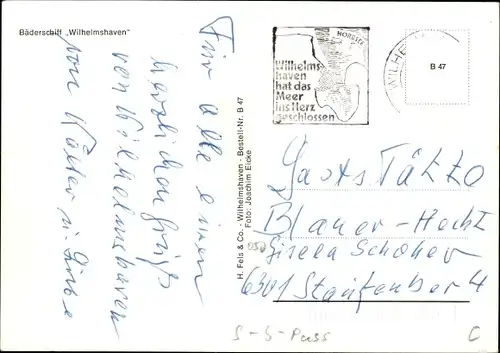 Bäderschiff „Wilhelmshaven"
Für alle einen
herzlichen Gruß
von Wilhelmshaven
von Käster u.
H. Fels & Co. - Wilhelmshaven - Bestell-Nr. B 47
Foto: Joachim Eicke
NORDSEE
Wilhelms-
haven
hat das
Meer
ins Herz
geschlossen
WILHE
B 47
Gasts TÄTZO
Blauer-Hecht
Gisela Schoher
6301 Staufenber 4
S-S-Pass
C